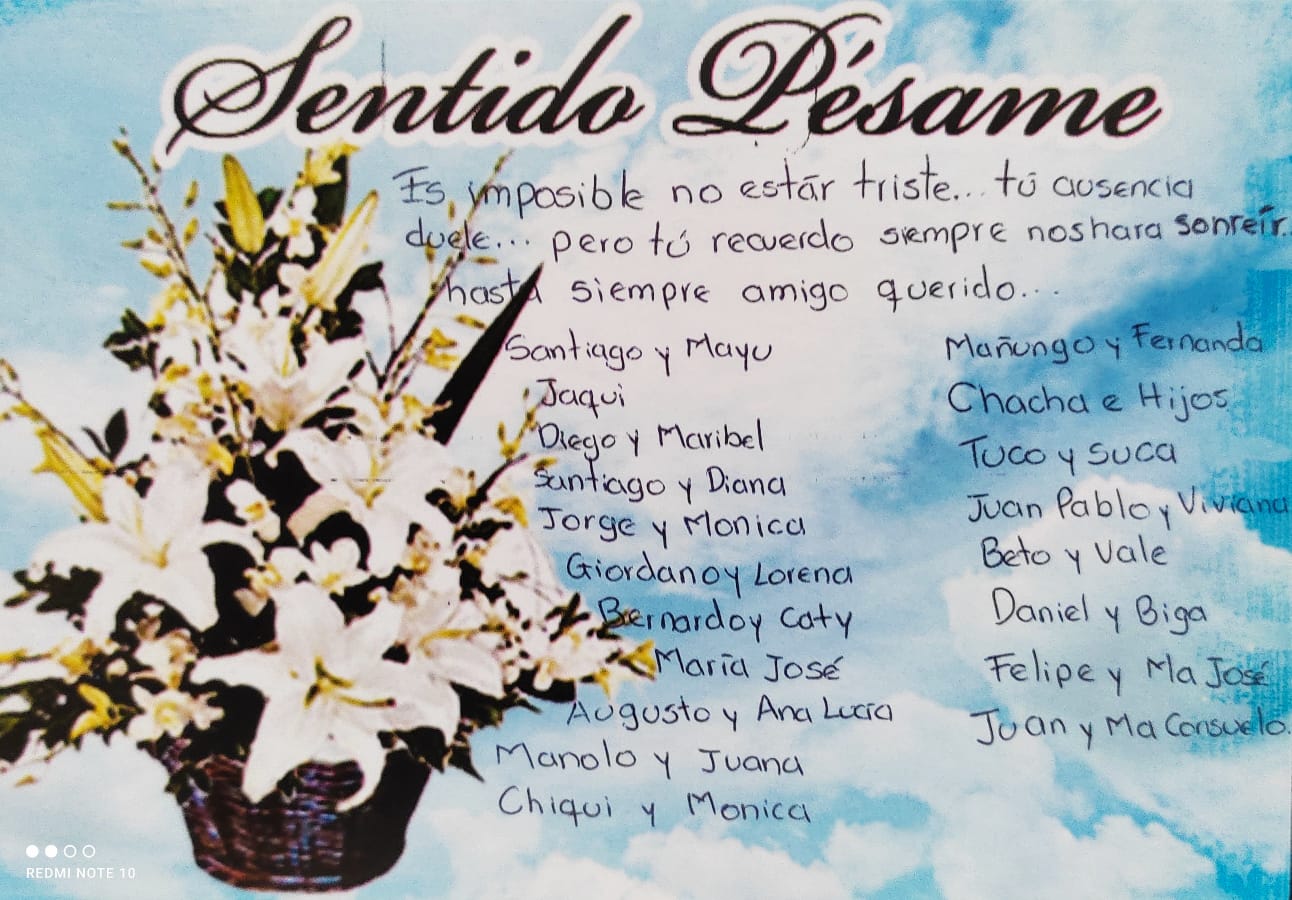 Sentido Pésame
Es imposible no estár triste... tú ausencia
duele... pero tú recuerdo siempre nos hara sonreír.
hasta siempre amigo querido...
Santiago y Mayu
Jaqui
Diego y Maribel
Santiago y Diana
Jorge y Monica
Giordano y Lorena
Bernardo y Caty
María José
Augusto y Ana Lucía
Manolo y Juana
Chiqui y Monica
Mañungo y Fernanda
Chacha e Hijos
Tuco y Suca
Juan Pablo y Viviana
Beto y Vale
Daniel y Biga
Felipe y Ma José
Juan y Ma Consuelo.
REDMI NOTE 10